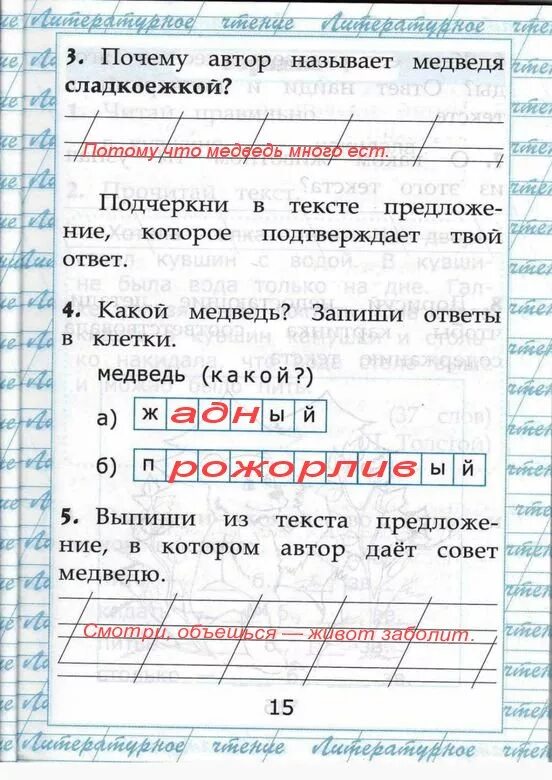 Литературное чтение Литературное
3. Почему автор называет медведя
сладкоежкой?
Потому что медведь много ест.
Подчеркни в тексте предложе-
ние, которое подтверждает твой
ответ.
4. Какой медведь? Запиши ответы
в клетки.
медведь (какой?)
а) жадный
б) прожорливый
5. Выпиши из текста предложе-
ние, в котором автор даёт совет
медведю.
Смотри, объешься — живот заболит.
15
Литературное чтение Литературное